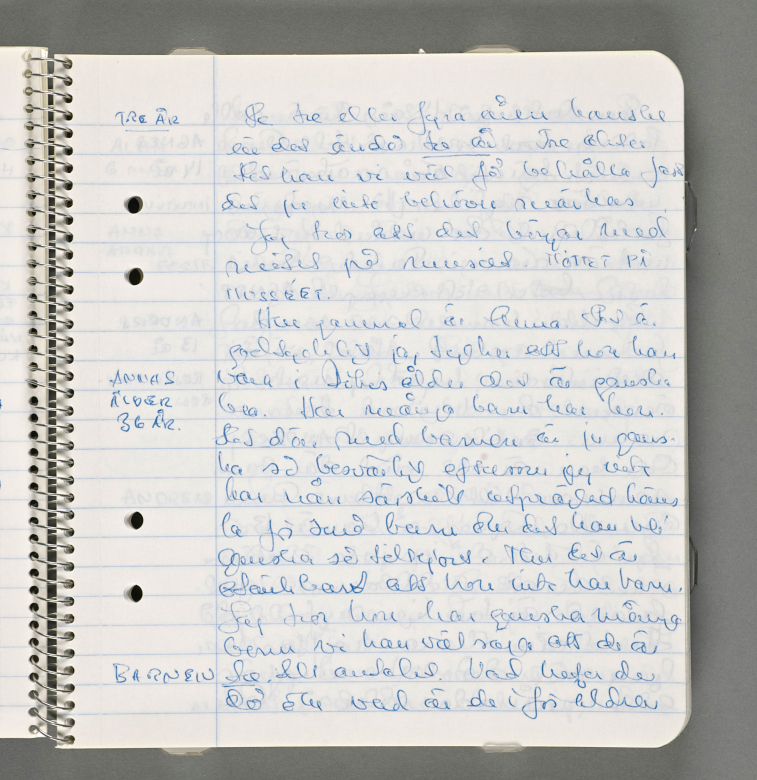 TRE ÅR
De tre eller fyra åren kanske
är det ändå tre år. Tre eller
det kan vi väl få behålla fast
det ju inte behöver märkas
Jag tror att det börjar med
mötet på museet. MÖTET PÅ
MUSEET.
Hur gammal är Anna. Det är
jag tycker att hon kan
ANNAS ÅLDER 36 ÅR.
vara i ålder det är ganska
bra. Hur många barn har hon.
Det där med barnen är ju gans-
ka så besvärligt eftersom jag inte
har nån särskilt utpräglad käns
la för små barn och det kan bli
ganska så. Men det är
otänkbart att hon inte har barn.
Jag tror hon har ganska många
barn vi kan väl säga att de är
BARNEN
tre till antalet. Vad heter de
då och vad är de i för åldrar